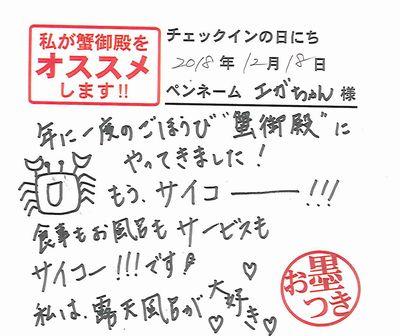 私が蟹御殿を
オススメ
します!!
チェックインの日にち
2018年 12月 18日
ペンネーム エガちゃん 様
年に一度のごほうび "蟹御殿"に
やってきました!
もう、サイコー!!!
食事もお風呂も サービスも
サイコー!!!です♪
私は、露天風呂が大好き♡
お墨つき